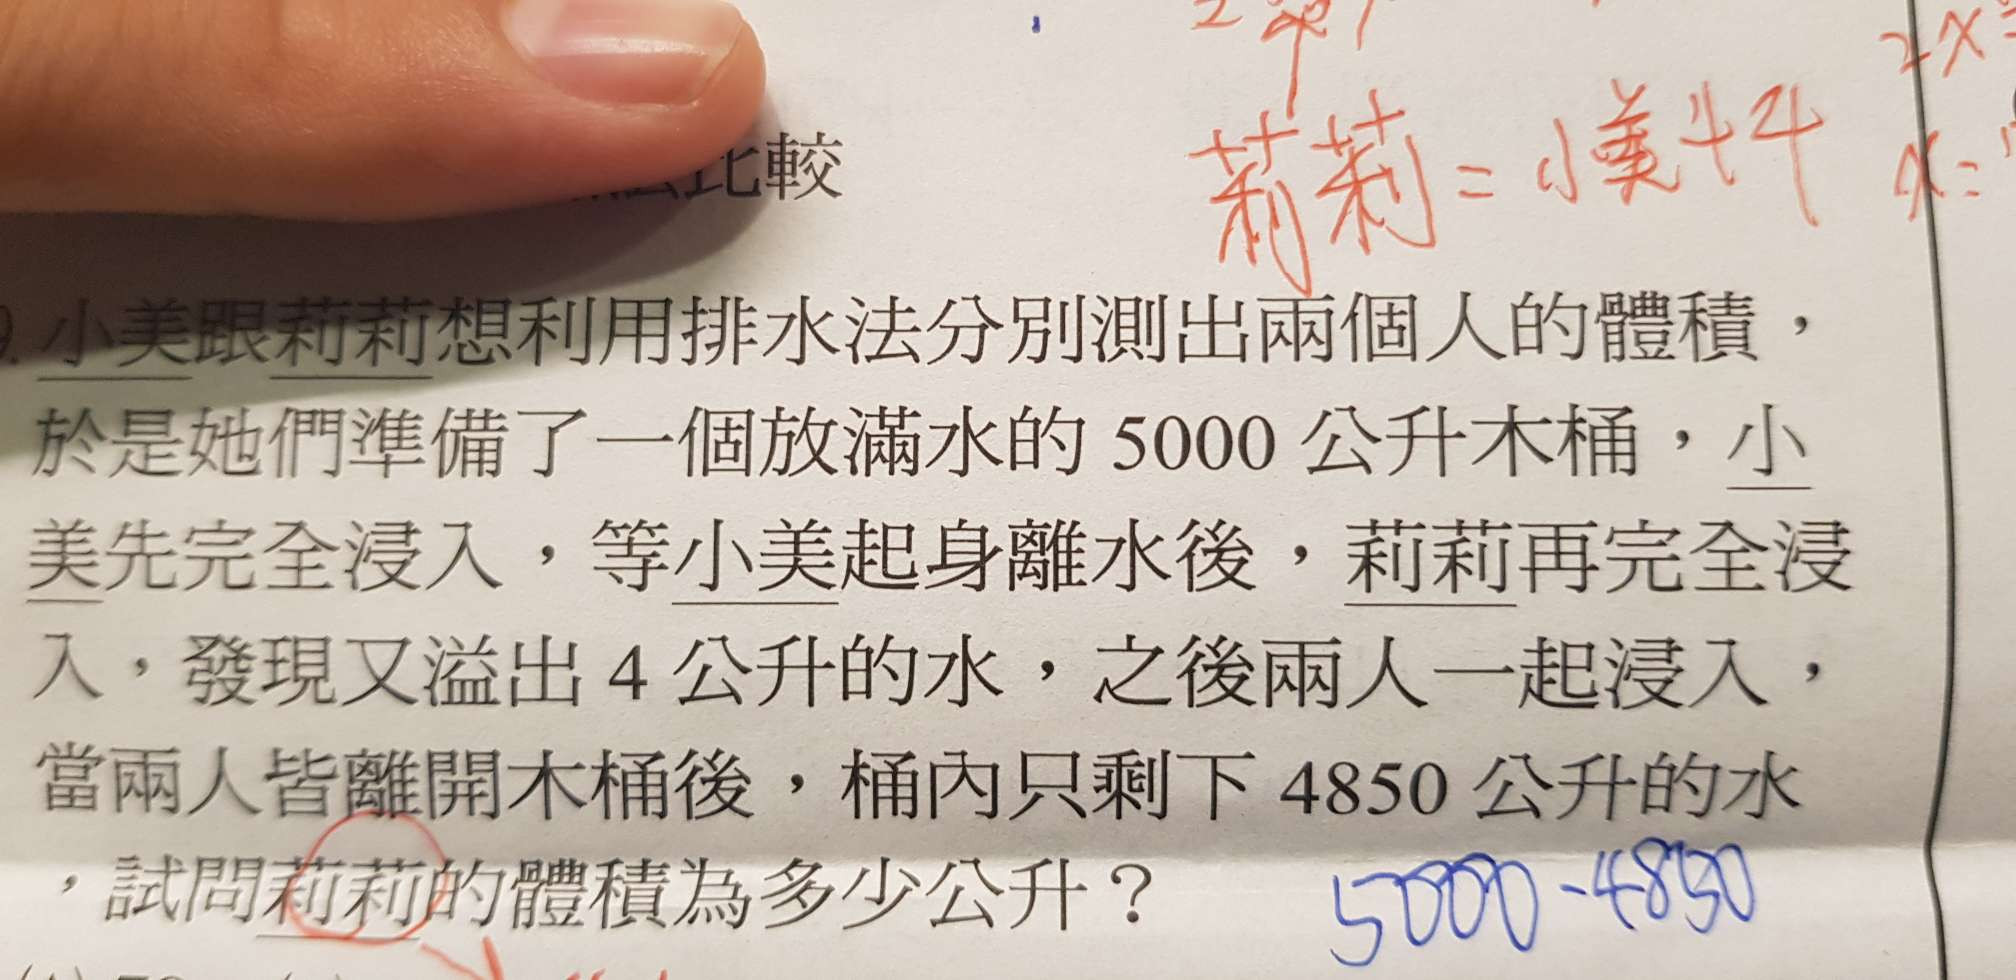 比較
莉莉=小美+4
x=
9.小美跟莉莉想利用排水法分別測出兩個人的體積，
於是她們準備了一個放滿水的 5000 公升木桶，小
美先完全浸入，等小美起身離水後，莉莉再完全浸
入，發現又溢出 4 公升的水，之後兩人一起浸入，
當兩人皆離開木桶後，桶內只剩下 4850 公升的水
，試問莉莉的體積為多少公升？
5000-4850